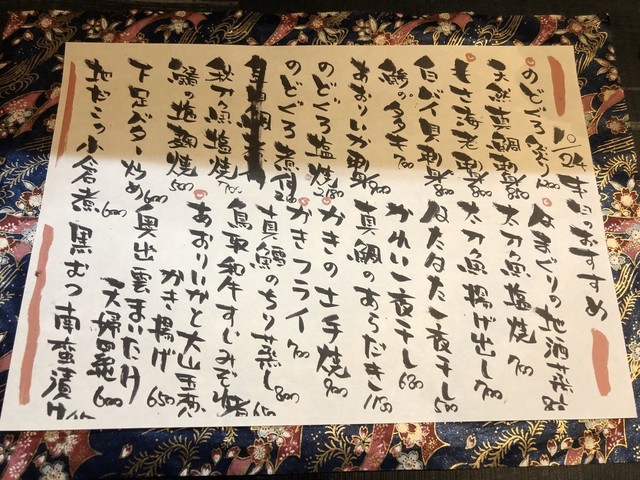 10/24 本日おすすめ
のどぐろ
天然真鯛刺
もさ海老刺
白バイ貝刺
鯵のタタキ 700
あおりいか刺
のどぐろ塩焼
のどぐろ煮付
秋刀魚塩焼
鰆の塩麹焼
下足バター炒め 600
地だこの小倉煮 600
はまぐりの地酒蒸し
太刀魚塩焼 700
太刀魚揚げ出し 700
はたはた一夜干し
かれい一夜干し 680
真鯛のあらだき 1150
かきの土手焼 900
かきフライ 700
真鱈のちり蒸し 800
鳥取和牛すじみそ
あおりいかと大山玉葱
かき揚げ 650
奥出雲まいたけ
天婦羅 600
黒むつ南蛮漬け